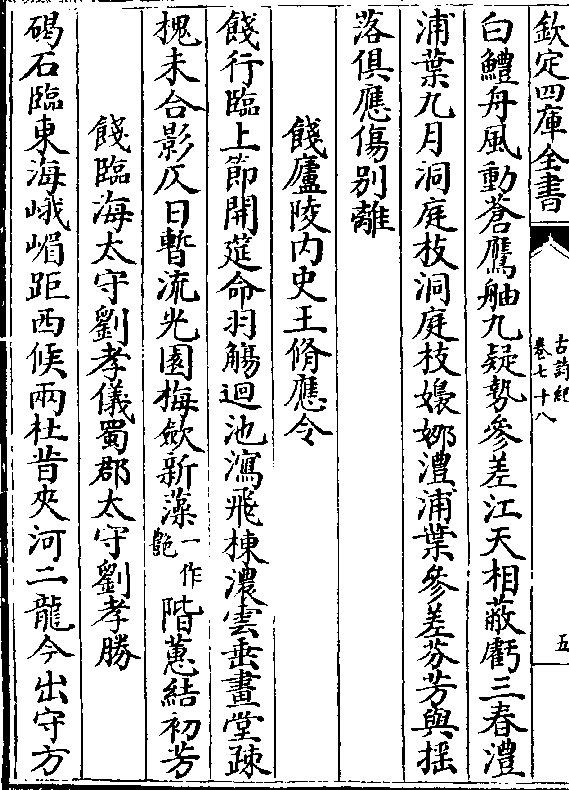 欽定四庫全書
古詩紀
卷七十八
五
白鱧舟風動蒼鷹舳九疑勢參差江天相蔽虧三春澧
浦葉九月洞庭枝洞庭枝嬝娜澧浦葉參差芬芳與揺
落俱應傷别離
餞廬陵内史王脩應令
餞行臨上節開筵命羽觴迴池瀉飛棟濃雲垂畫堂疎
槐未合影仄日暫流光園梅斂新藻一作艶階蕙結初芳
餞臨海太守劉孝儀蜀郡太守劉孝勝
碣石臨東海峨嵋距西候兩杜昔夾河二龍今出守方